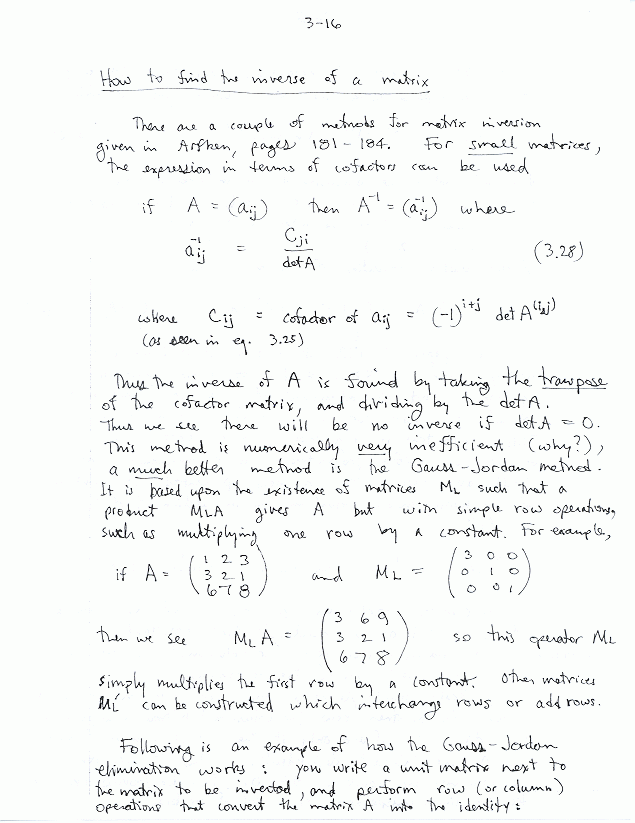 3-16
How to find the inverse of a matrix
There are a couple of methods for matrix inversion
given in Arfken, pages 181 - 184. For small matrices,
the expression in terms of cofactors can be used
if A = (aij) then A⁻¹ = (a⁻¹ij) where
a⁻¹ij = Cji / det A (3.28)
where Cij = cofactor of aij = (-1)^(i+j) det A^(i,j)
(as seen in eq. 3.25)
Thus the inverse of A is found by taking the transpose
of the cofactor matrix, and dividing by the det A.
Thus we see there will be no inverse if det A = 0.
This method is numerically very inefficient (why?),
a much better method is the Gauss-Jordan method.
It is based upon the existence of matrices ML such that a
product MLA gives A but with simple row operations,
such as multiplying one row by a constant. For example,
if A = (1 2 3
3 2 1
6 7 8) and ML = (3 0 0
0 1 0
0 0 1)
then we see MLA = (3 6 9
3 2 1
6 7 8) so this operator ML
simply multiplies the first row by a constant. Other matrices
ML' can be constructed which interchange rows or add rows.
Following is an example of how the Gauss-Jordan
elimination works : you write a unit matrix next to
the matrix to be inverted, and perform row (or column)
operations that convert the matrix A into the identity: